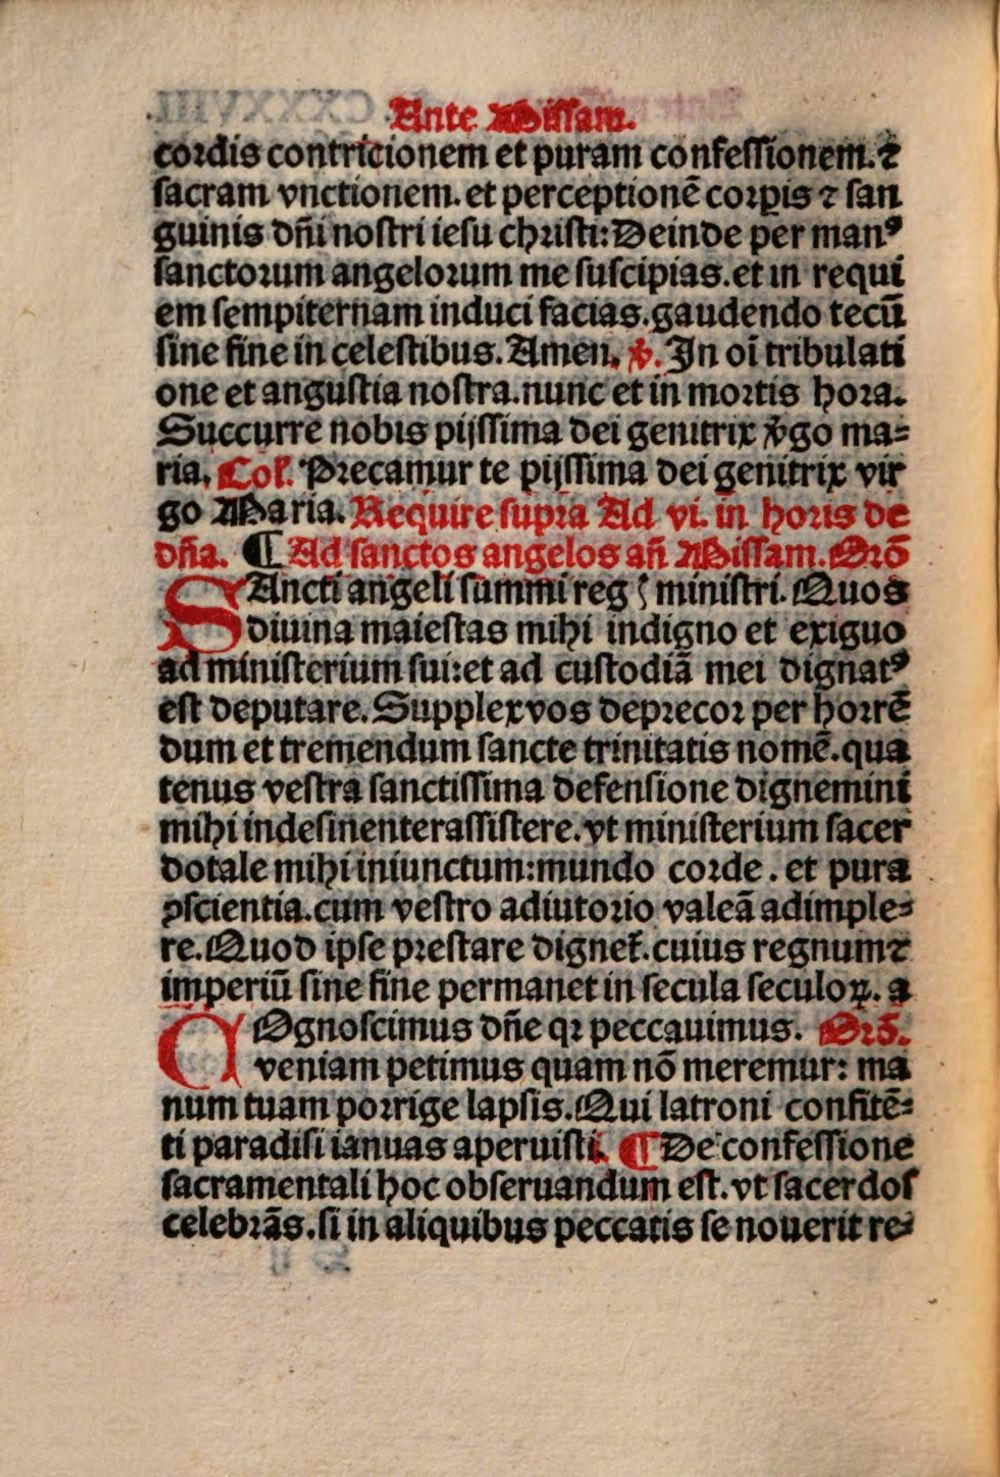 Ante Missam.
cordis contricionem et puram confessionem. ⁊
sacram vnctionem. et perceptionē corꝑis ⁊ san
guinis dñi nostri iesu christi: Deinde per manꝰ
sanctorum angelorum me suscipias. et in requi
em sempiternam induci facias. gaudendo tecū
sine fine in celestibus. Amen. ℣. In oī tribulati
one et angustia nostra. nunc et in mortis hora.
Succurre nobis pijssima dei genitrix v̄go ma⸗
ria. Col. Precamur te pijssima dei genitrix vir
go Maria. Require supra Ad vi. in horis de
dña. ¶ Ad sanctos angelos añ Missam. Orō
SAncti angeli summi regꝭ ministri. Quos
diuina maiestas mihi indigno et exiguo
ad ministerium sui: et ad custodiā mei dignatꝰ
est deputare. Supplex vos deprecor per horrē
dum et tremendum sancte trinitatis nomē. qua
tenus vestra sanctissima defensione dignemini
mihi indesinenter assistere. vt ministerium sacer
dotale mihi iniunctum: mundo corde. et pura
ꝯscientia. cum vestro adiutorio valeā adimple⸗
re. Quod ipse prestare dignet᷑. cuius regnum ⁊
imperiū sine fine permanet in secula seculoꝝ. a
COgnoscimus dñe qꝛ peccauimus. Orō.
veniam petimus quam nō meremur: ma
num tuam porrige lapsis. Qui latroni confitē⸗
ti paradisi ianuas aperuisti. ¶ De confessione
sacramentali hoc obseruandum est. vt sacerdos
celebrās. si in aliquibus peccatis se nouerit re⸗